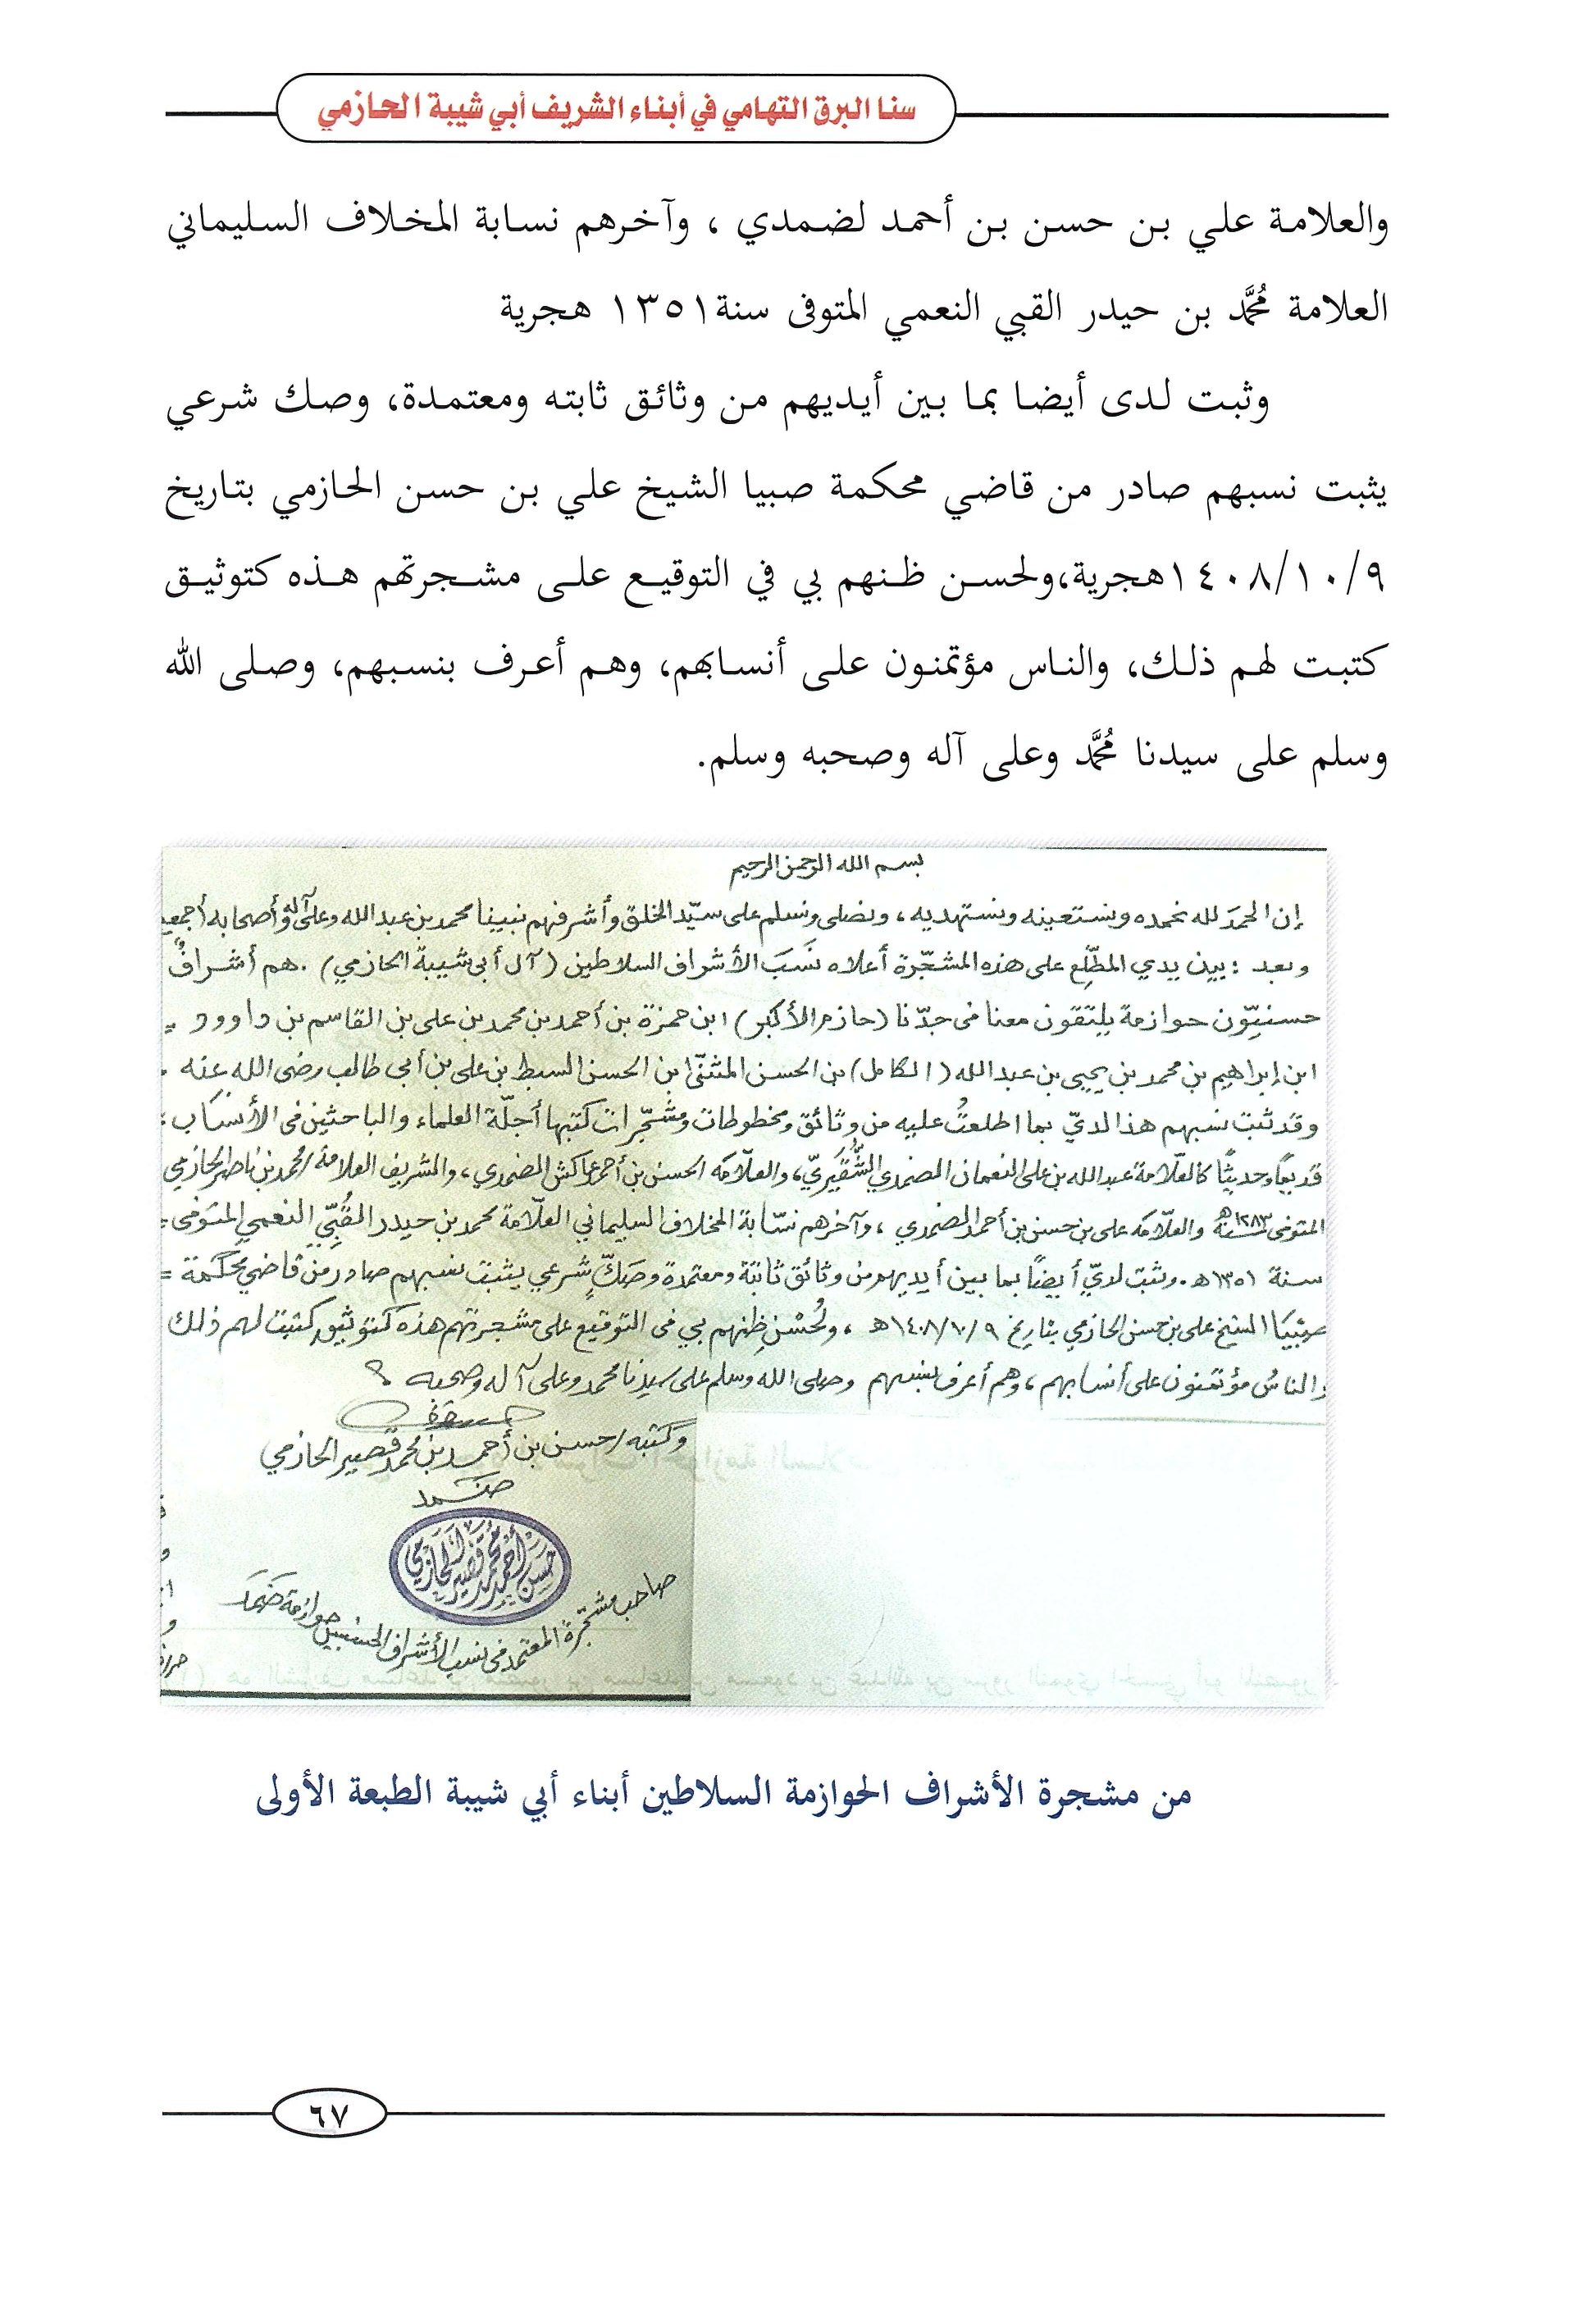 سنا البرق التهامي في أبناء الشريف أبي شيبة الحازمي
والعلامة علي بن حسن بن أحمد لضمدي ، وآخرهم نسابة المخلاف السليماني
العلامة مُحَمَّد بن حيدر القبي النعمي المتوفى سنة١٣٥١ هجرية
وثبت لدى أيضا بما بين أيديهم من وثائق ثابته ومعتمدة، وصك شرعي
يثبت نسبهم صادر من قاضي محكمة صبيا الشيخ علي بن حسن الحازمي بتاريخ
١٤٠٨/١٠/٩هجرية،ولحسن ظنهم بي في التوقيع على مشجرتهم هذه كتوثيق
كتبت لهم ذلك، والناس مؤتمنون على أنسابهم، وهم أعرف بنسبهم، وصلى الله
وسلم على سيدنا مُحَمَّد وعلى آله وصحبه وسلم.
بسم الله الرحمن الرحيم
إن الحمدَ لله نحمده ونستعينه ونستهديه ، ونصلى ونسلم على سيّد الخلق وأشرفهم نبينا محمد بن عبد الله وعلى آله وأصحابه
وبعد : بين يدي المطّلِع على هذه المشجّرة أعلاه نَسَبَ الأشراف السلاطين (آل أبي شيبة الحازمي) . هم أشرافٌ
حسنيّون حوازمة يلتقون معنا فى جدّنا (حازم الأكبر) ابن حمزة بن أحمد بن محمد بن على بن القاسم بن داوود
ابن إبراهيم بن محمد بن يحيى بن عبد الله (الكامل) بن الحسن المثنّى ابن الحسن السبط بن على بن أبى طالب رضى الله عنه
وقد ثبت نسبهم هذا لديّ بما اطلعتُ عليه من وثائق ومخطوطات ومشجّرات كتبها أجلّة العلماء والباحثين فى الأنساب
قديمًا وحديثًا كالعلّامة عبد الله بن على النعمان الضمدي الشُّقَيَريّ، والعلّامة الحسن بن أحمد عاكش الضمدي ، والشريف العلامة / محمد بن ناصر الحازمي
المتوفى سنة ١٢٨٣هـ والعلّامة على بن حسن بن أحمد الضمدي ، وآخرهم نسّابة المخلاف السليماني العلّامة محمد بن حيدر القُبِّي النعمي المتوفى =
سنة ١٣٥١ هـ . وثبت لديّ أيضًا بما بين أيديهم من وثائق ثابتة ومعتمدة وصكٍّ شرعي يثبت نسبهم صادر من قاضي محكمة =
صبْيَا الشيخ على بن حسن الحازمي بتاريخ ١٤٠٨/١٠/٩ هـ ، ولحُسْنِ ظنهم بي فى التوقيع على مشجرتهم هذه كتوثيق كتبت لهم ذلك
والناسُ مؤتمنون على أنسابهم ، وهم أعرف بنسبهم وصلى الله وسلم على سيدنا محمد وعلى آله وصحبه
وكتبه / حسن بن أحمد بن محمد قصير الحازمي
ضمد
حسن أحمد محمد قصير الحازمي
صاحب مشجّرة المعتمد فى نسب الأشراف الحسنيين حوازمة ضمد
من مشجرة الأشراف الحوازمة السلاطين أبناء أبي شيبة الطبعة الأولى
٦٧